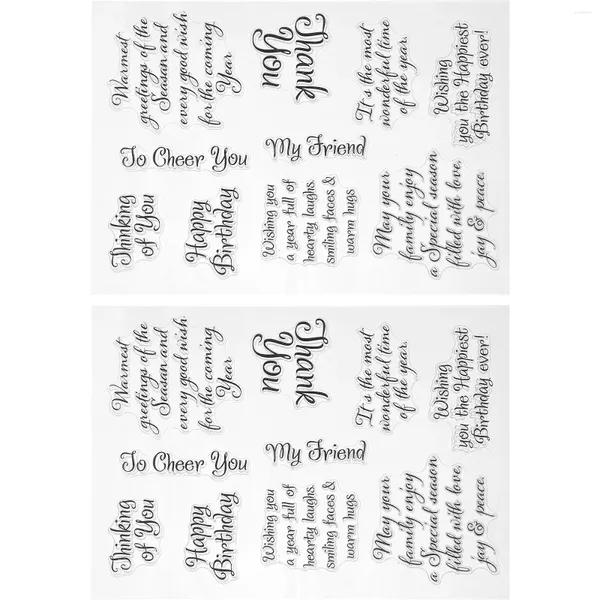 Warmest
greetings of the
Seasan and
every good wish
for the coming
Year
Thank
You
It's the most
wonderful time
of the year.
Wishing
you the Happiest
Birthday ever!
To Cheer You
My Friend
Thinking
of You
Happy
Birthday
Wishing you
a year full of
hearty laughs.
smiling faces &
warm hugs
May your
family enjoy
a Special season
filled with love,
jay & peace.
Warmest
greetings of the
Seasan and
every good wish
for the coming
Year
Thank
You
It's the most
wonderful time
of the year.
Wishing
you the Happiest
Birthday ever!
To Cheer You
My Friend
Thinking
of You
Happy
Birthday
Wishing you
a year full of
hearty laughs.
smiling faces &
warm hugs
May your
family enjoy
a Special season
filled with love,
jay & peace.